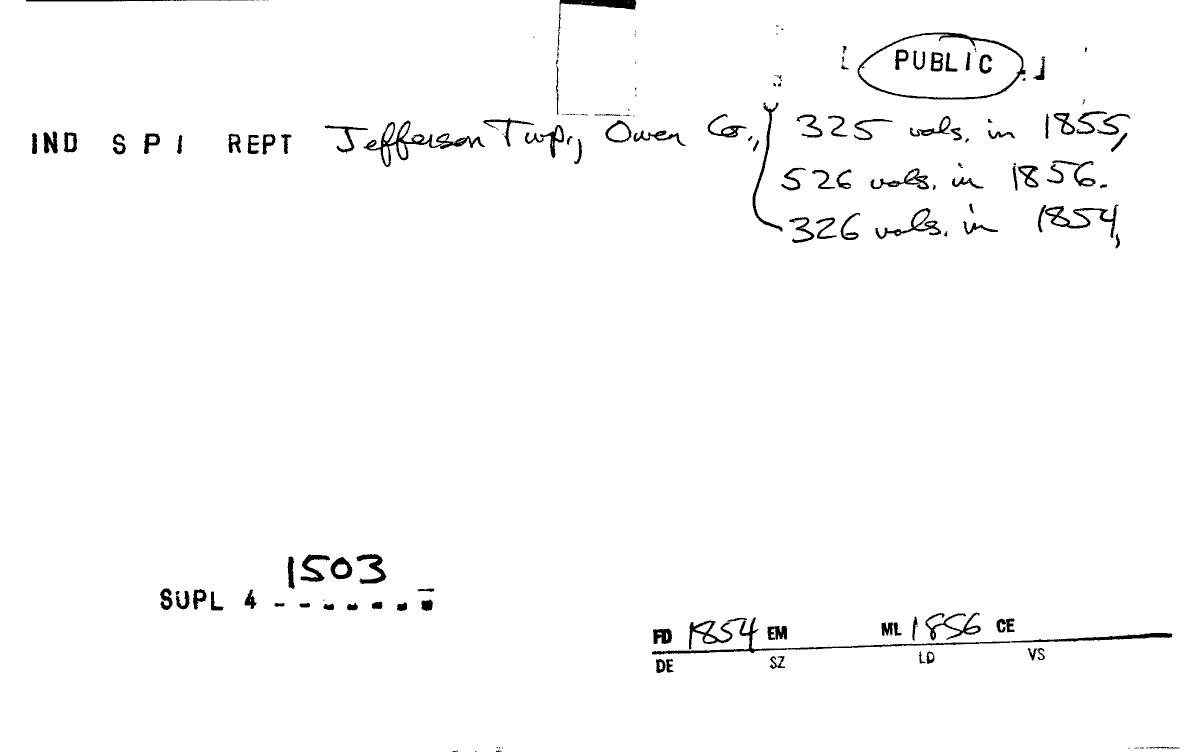 [ PUBLIC ]
IND S P I REPT Jefferson Twp., Owen Co., 325 vols. in 1855,
526 vols. in 1856.
326 vols. in 1854,
1503
SUPL 4 - - - - - - -
FD 1854 EM ML 1856 CE
DE SZ LD VS